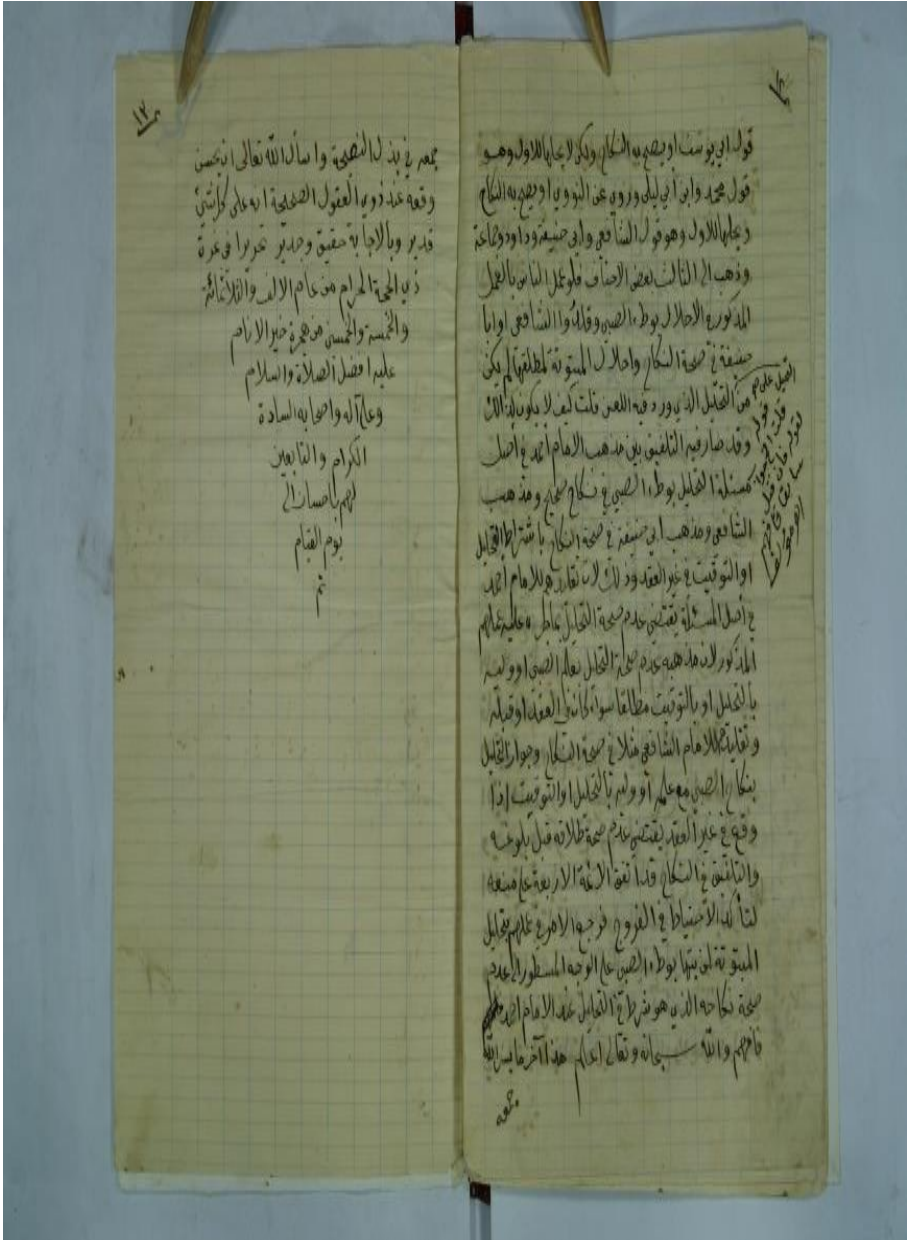 قول ابي يوسف او يصح به النكاح ولكن لا يحلها للاول وهو
قول محمد وابن أبي ليلى وروي عن الثوري او يصح به النكاح
ويحلها للاول وهو قول الشافعي وابي حنيفة وداود وجماعة
وذهب الى الثالث بعض الاحناف فلو عمل الناس بالعمل
المذكور في الاحلال بوطء الصبي وقلدوا الشافعي او ابا
حنيفة في صحة النكاح واحلال المبتوتة لمطلقها لم يكن
من التحليل الذي ورد فيه اللعن قلت كيف لا يكون لذلك
وقد صار فيه التلفيق بين مذهب الامام احمد في أصل
مسئلة التحليل بوطء الصبي في نكاح صحيح ومذهب
الشافعي ومذهب ابي حنيفة في صحة النكاح باشتراط التحليل
او التوقيت في غير العقد وذلك لان تقليدهم للامام احمد
في أصل المسئلة يقتضي عدم صحة التحليل بما عليه عملهم
المذكور لان مذهبه عدم صحة التحليل بعلم الصبي او وليه
بالتحليل او بالتوقيت مطلقا سواء كان في العقد او قبله
وتقليدهم للامام الشافعي مثلا في صحة النكاح وجواز التحليل
بنكاح الصبي مع علمه أو وليه بالتحليل او التوقيت اذا
وقع في غير العقد يقتضي عدم صحة طلاقه قبل بلوغه
والتلفيق في النكاح قد اتفق الائمة الاربعة على منعه
لتأكد الاحتياط في الفروج فرجع الامر في عملهم بتحليل
المبتوتة لمن بتها بوطء الصبي على الوجه المسطور الى عدم
صحة نكاحه الذي هو شرط في التحليل عند الامام احمد
فافهم والله سبحانه وتعالى اعلم هذا آخر ما يسر الله
جمعه
١٢
جمعه في بذل النصيحة واسأل الله تعالى ان يحسن
وقعه عند ذوي العقول الصحيحة انه على كل شئ
قدير وبالاجابة حقيق وجدير تحريرا في غرة
ذي الحجة الحرام من عام الالف والثلاثمائة
والخمسة والخمسين من هجرة خير الانام
عليه افضل الصلاة والسلام
وعلى آله واصحابه السادة
الكرام والتابعين
لهم باحسان الى
يوم القيام
تم